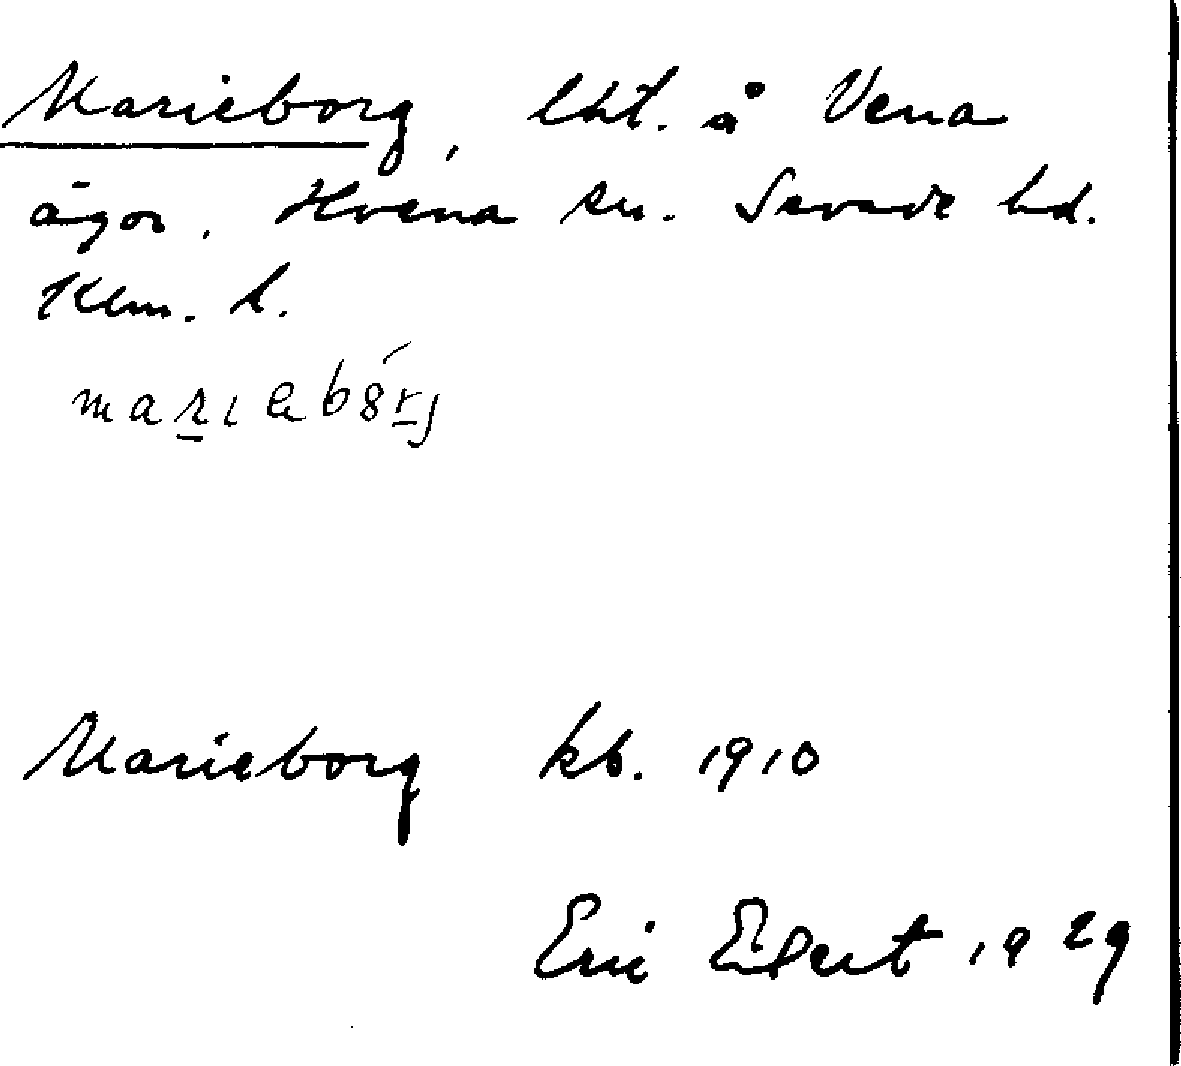 Marieborg, lht. å Vena
ägor. Hvena sn. Sevede hd.
Klm. l.
Marieborg kb. 1910
Eric Elgert 1929